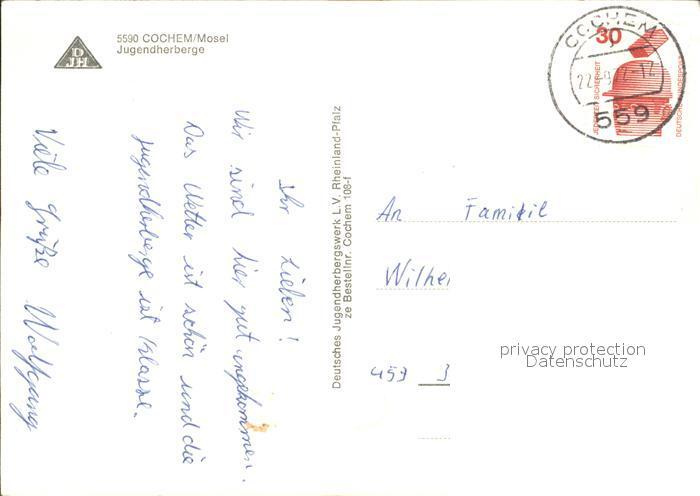 5590 COCHEM/Mosel
Jugendherberge
D
JH
COCHEM
30
JEDERZEIT SICHERHEIT
DEUTSCHE BUNDESPOST
559
Ihr Lieben!
Wir sind hier gut angekommen.
Das Wetter ist schön und die
Jugendherberge ist Klasse.
Viele Grüße Wolfgang
Deutsches Jugendherbergswerk L.V. Rheinland-Pfalz
ze Bestellnr. Cochem 108-f
An Familie
Wilhe
453 3
privacy protection
Datenschutz